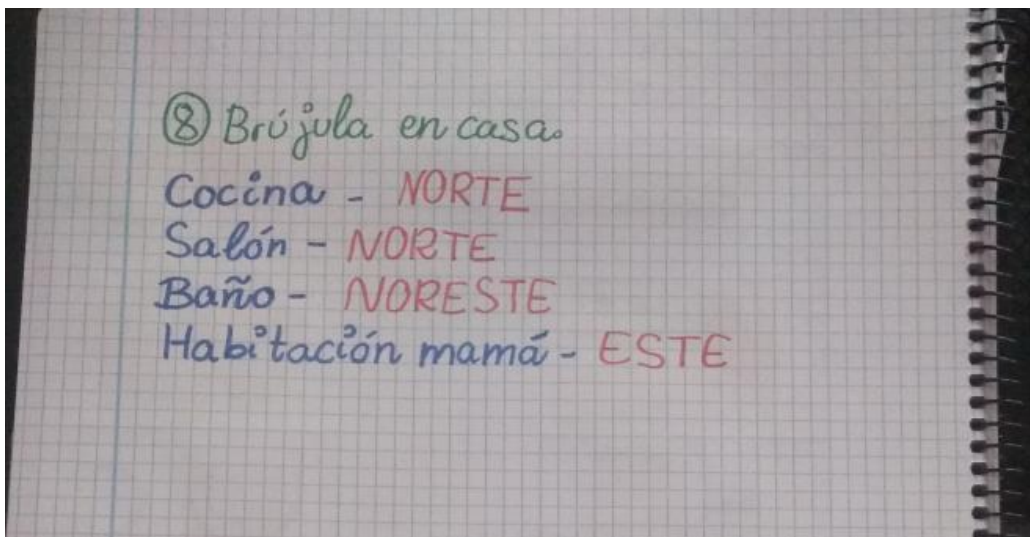 ⑧ Brújula en casa.
Cocina - NORTE
Salón - NORTE
Baño - NORESTE
Habitación mamá - ESTE